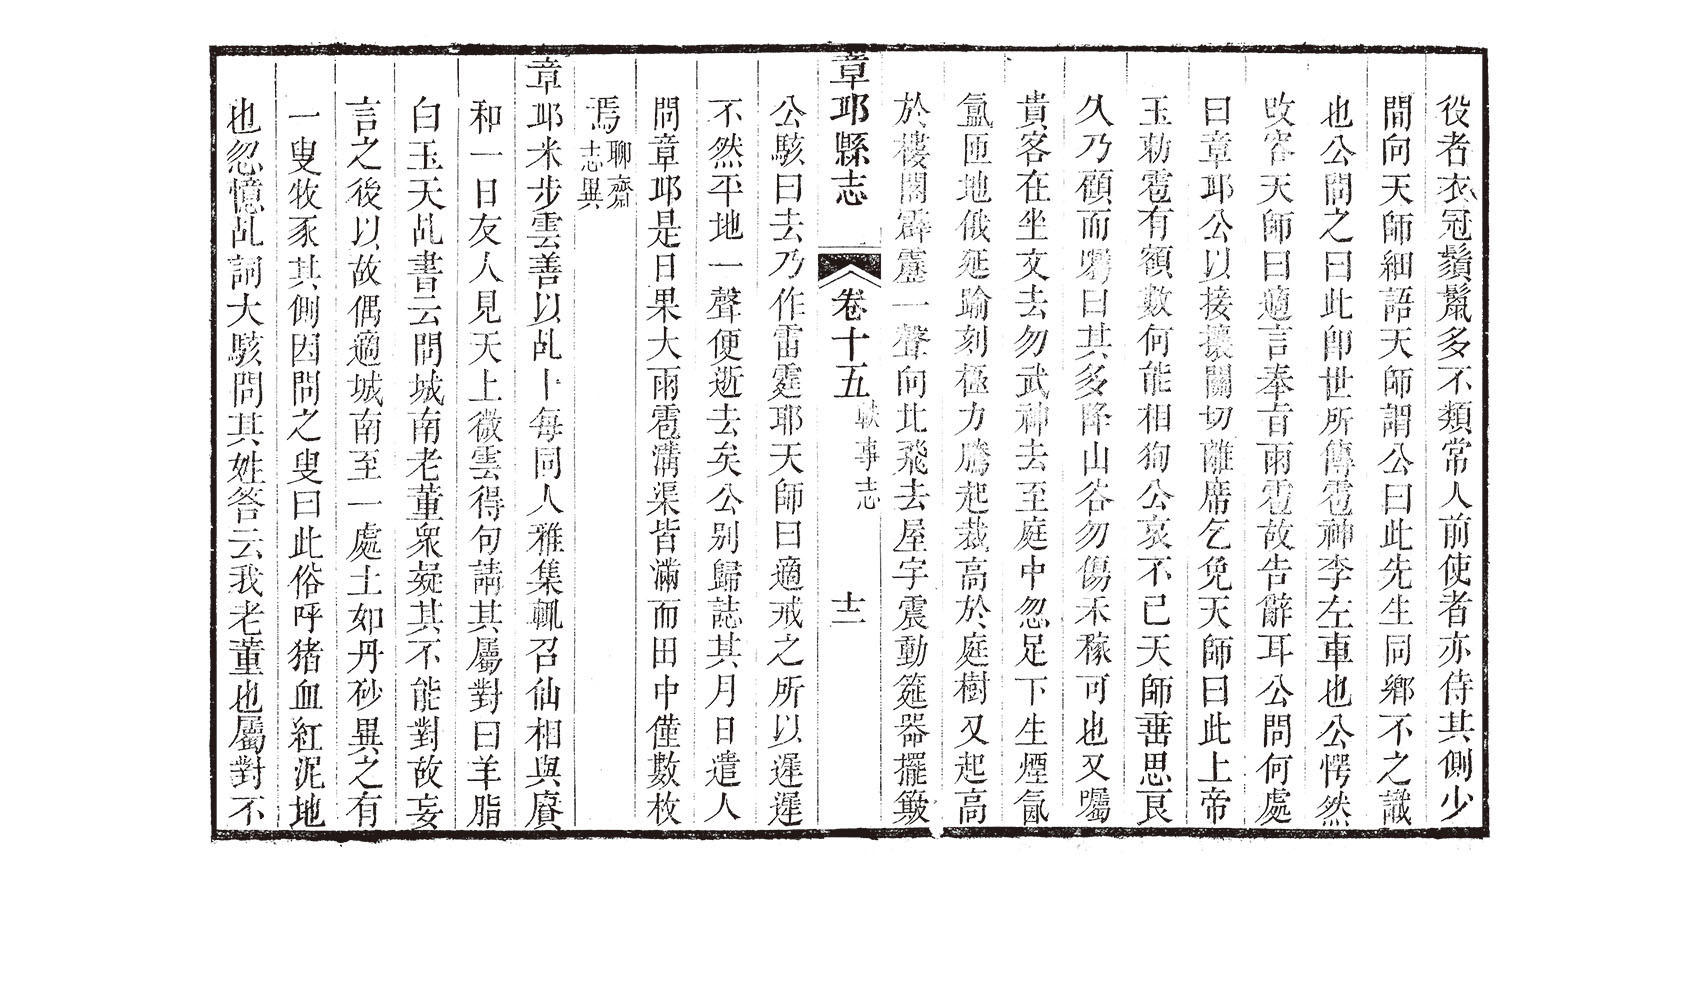 役者衣冠鬚鬣多不類常人前使者亦侍其側少
間向天師細語天師謂公曰此先生同鄉不之識
也公問之曰此即世所傳雹神李左車也公愕然
改容天師曰適言奉旨雨雹故告辭耳公問何處
曰章邱公以接壤關切離席乞免天師曰此上帝
玉勅雹有額數何能相狥公哀不已天師垂思良
久乃顧而囑曰其多降山谷勿傷禾稼可也又囑
貴客在坐文去勿武神去至庭中忽足下生煙氤
氳匝地俄延踰刻極力騰起裁高於庭樹又起高
於樓閣霹靂一聲向北飛去屋宇震動筵器擺簸
章邱縣志 卷十五 軼事志 十二
公駭曰去乃作雷霆耶天師曰適戒之所以遲遲
不然平地一聲便逝去矣公别歸誌其月日遣人
問章邱是日果大雨雹溝渠皆滿而田中僅數枚
焉聊齋志異
章邱米步雲善以乩卜每同人雅集輒召仙相與賡
和一日友人見天上微雲得句請其屬對曰羊脂
白玉天乩書云問城南老董衆疑其不能對故妄
言之後以故偶適城南至一處土如丹砂異之有
一叟牧豕其側因問之叟曰此俗呼猪血紅泥地
也忽憶乩詞大駭問其姓答云我老董也屬對不